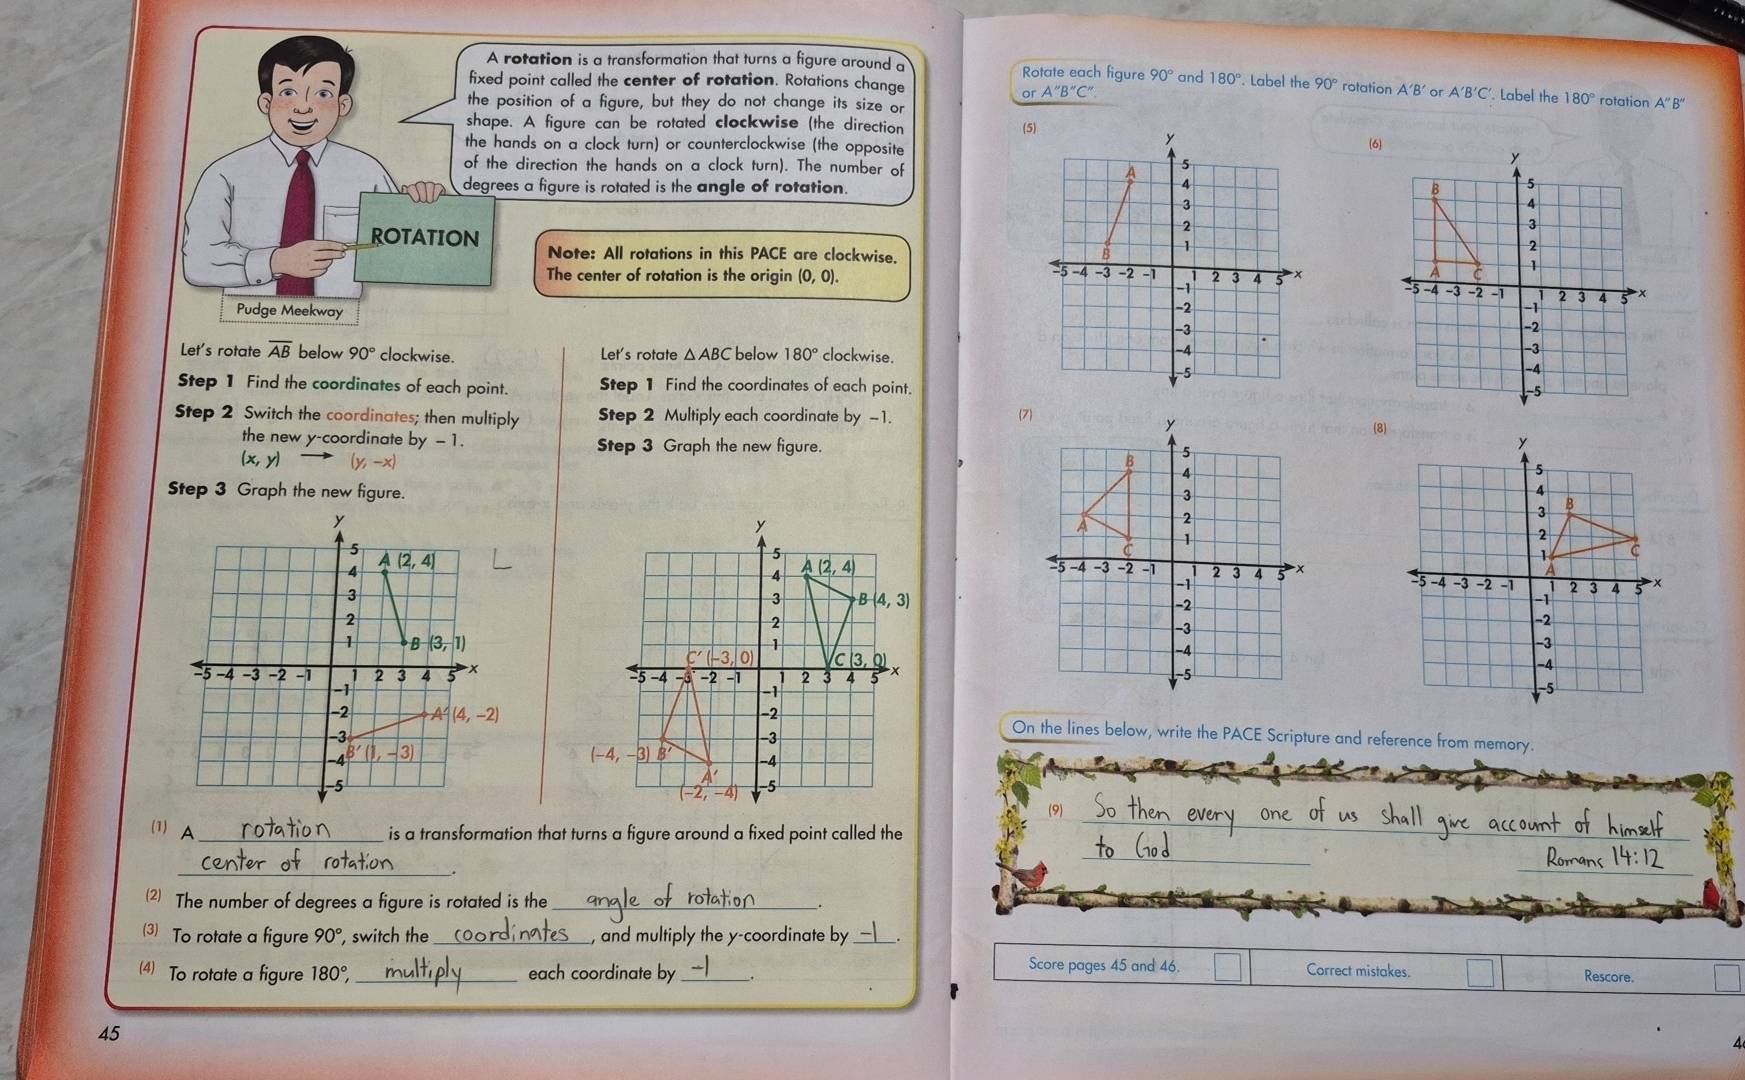 A rotation is a transformation that turns a figure around a
fixed point called the center of rotation. Rotations change
the position of a figure, but they do not change its size or
shape. A figure can be rotated clockwise (the direction
the hands on a clock turn) or counterclockwise (the opposite
of the direction the hands on a clock turn). The number of
degrees a figure is rotated is the angle of rotation.
ROTATION
Pudge Meekway
Note: All rotations in this PACE are clockwise.
The center of rotation is the origin (0, 0).
Let's rotate AB below 90° clockwise.
Step 1 Find the coordinates of each point.
Step 2 Switch the coordinates; then multiply
the new y-coordinate by – 1.
(x, y) → (y, –x)
Step 3 Graph the new figure.
y
5
4
3
2
1
A (2, 4)
B (3, 1)
-5 -4 -3 -2 -1 1 2 3 4 5 x
-1
-2
-3
-4
-5
A' (4, –2)
B' (1, – 3)
L
Let's rotate △ ABC below 180° clockwise.
Step 1 Find the coordinates of each point.
Step 2 Multiply each coordinate by –1.
Step 3 Graph the new figure.
y
5
4
3
2
1
A (2, 4)
B (4, 3)
C' (–3, 0)
C (3, 0)
-5 -4 -3 -2 -1 1 2 3 4 5 x
-1
-2
-3
-4
-5
(–4, –3) B'
A'
(–2, –4)
(1) A rotation is a transformation that turns a figure around a fixed point called the
center of rotation.
(2) The number of degrees a figure is rotated is the angle of rotation.
(3) To rotate a figure 90°, switch the coordinates, and multiply the y-coordinate by –1.
(4) To rotate a figure 180°, multiply each coordinate by –1.
45
Rotate each figure 90° and 180°. Label the 90° rotation A'B' or A'B'C'. Label the 180° rotation A"B"
or A"B"C".
(5)
y
5
4
3
2
1
A
B
-5 -4 -3 -2 -1 1 2 3 4 5 x
-1
-2
-3
-4
-5
(6)
y
5
4
3
2
1
B
A C
-5 -4 -3 -2 -1 1 2 3 4 5 x
-1
-2
-3
-4
-5
(7)
y
5
4
3
2
1
B
A
C
-5 -4 -3 -2 -1 1 2 3 4 5 x
-1
-2
-3
-4
-5
(8)
y
5
4
3
2
1
B
C
A
-5 -4 -3 -2 -1 1 2 3 4 5 x
-1
-2
-3
-4
-5
On the lines below, write the PACE Scripture and reference from memory.
(9) So then every one of us shall give account of himself
to God
Romans 14:12
Score pages 45 and 46. Correct mistakes. Rescore.